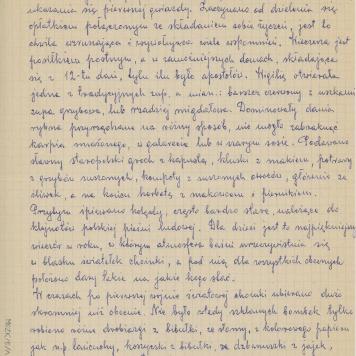 ukazania się pierwszej gwiazdy. Zaczynano od dzielenia się
opłatkiem połączonym ze składaniem sobie życzeń, jest to
chwila wzruszająca i wywołująca wiele wspomnień. Wieczerza jest
posiłkiem postnym, a w zamożniejszych domach, składająca
się z 12-tu dań, tylu ilu było apostołów. Wigilię otwierała
jedna z tradycyjnych zup, a miano.: barszcz czerwony z uszkami
zupa grzybowa, lub rzadziej migdałowa. Dominowały dania
rybne przyrządzane na różny sposób, nie mogło zabraknąć
karpia smażonego, w galarecie lub w szarym sosie. Podawano
sławny staropolski groch z kapustą, kluski z makiem, potrawy
z grzybów suszonych, kompoty z suszonych owoców, głównie ze
śliwek, a na końcu herbatę z makowcem i piernikiem.
Przytym śpiewano kolędy, często bardzo stare, należące do
klejnotów polskiej pieśni ludowej. Dla dzieci jest to najpiękniejszy
wieczór w roku, w którym atmosfera baśni urzeczywistnia się
w blasku światełek choinki, a pod nią dla wszystkich obecnych
położono dary takie na jakie kogo stać.
W czasach po pierwszej wojnie światowej choinki ubierano dużo
skromniej niż obecnie. Nie było wtedy szklanych bombek tylko
robiono różne drobiazgi z bibułki, ze słomy, z kolorowego papieru
jak np. łańcuchy, koszyczki z bibułki, ze dzbanuszki z jajek,